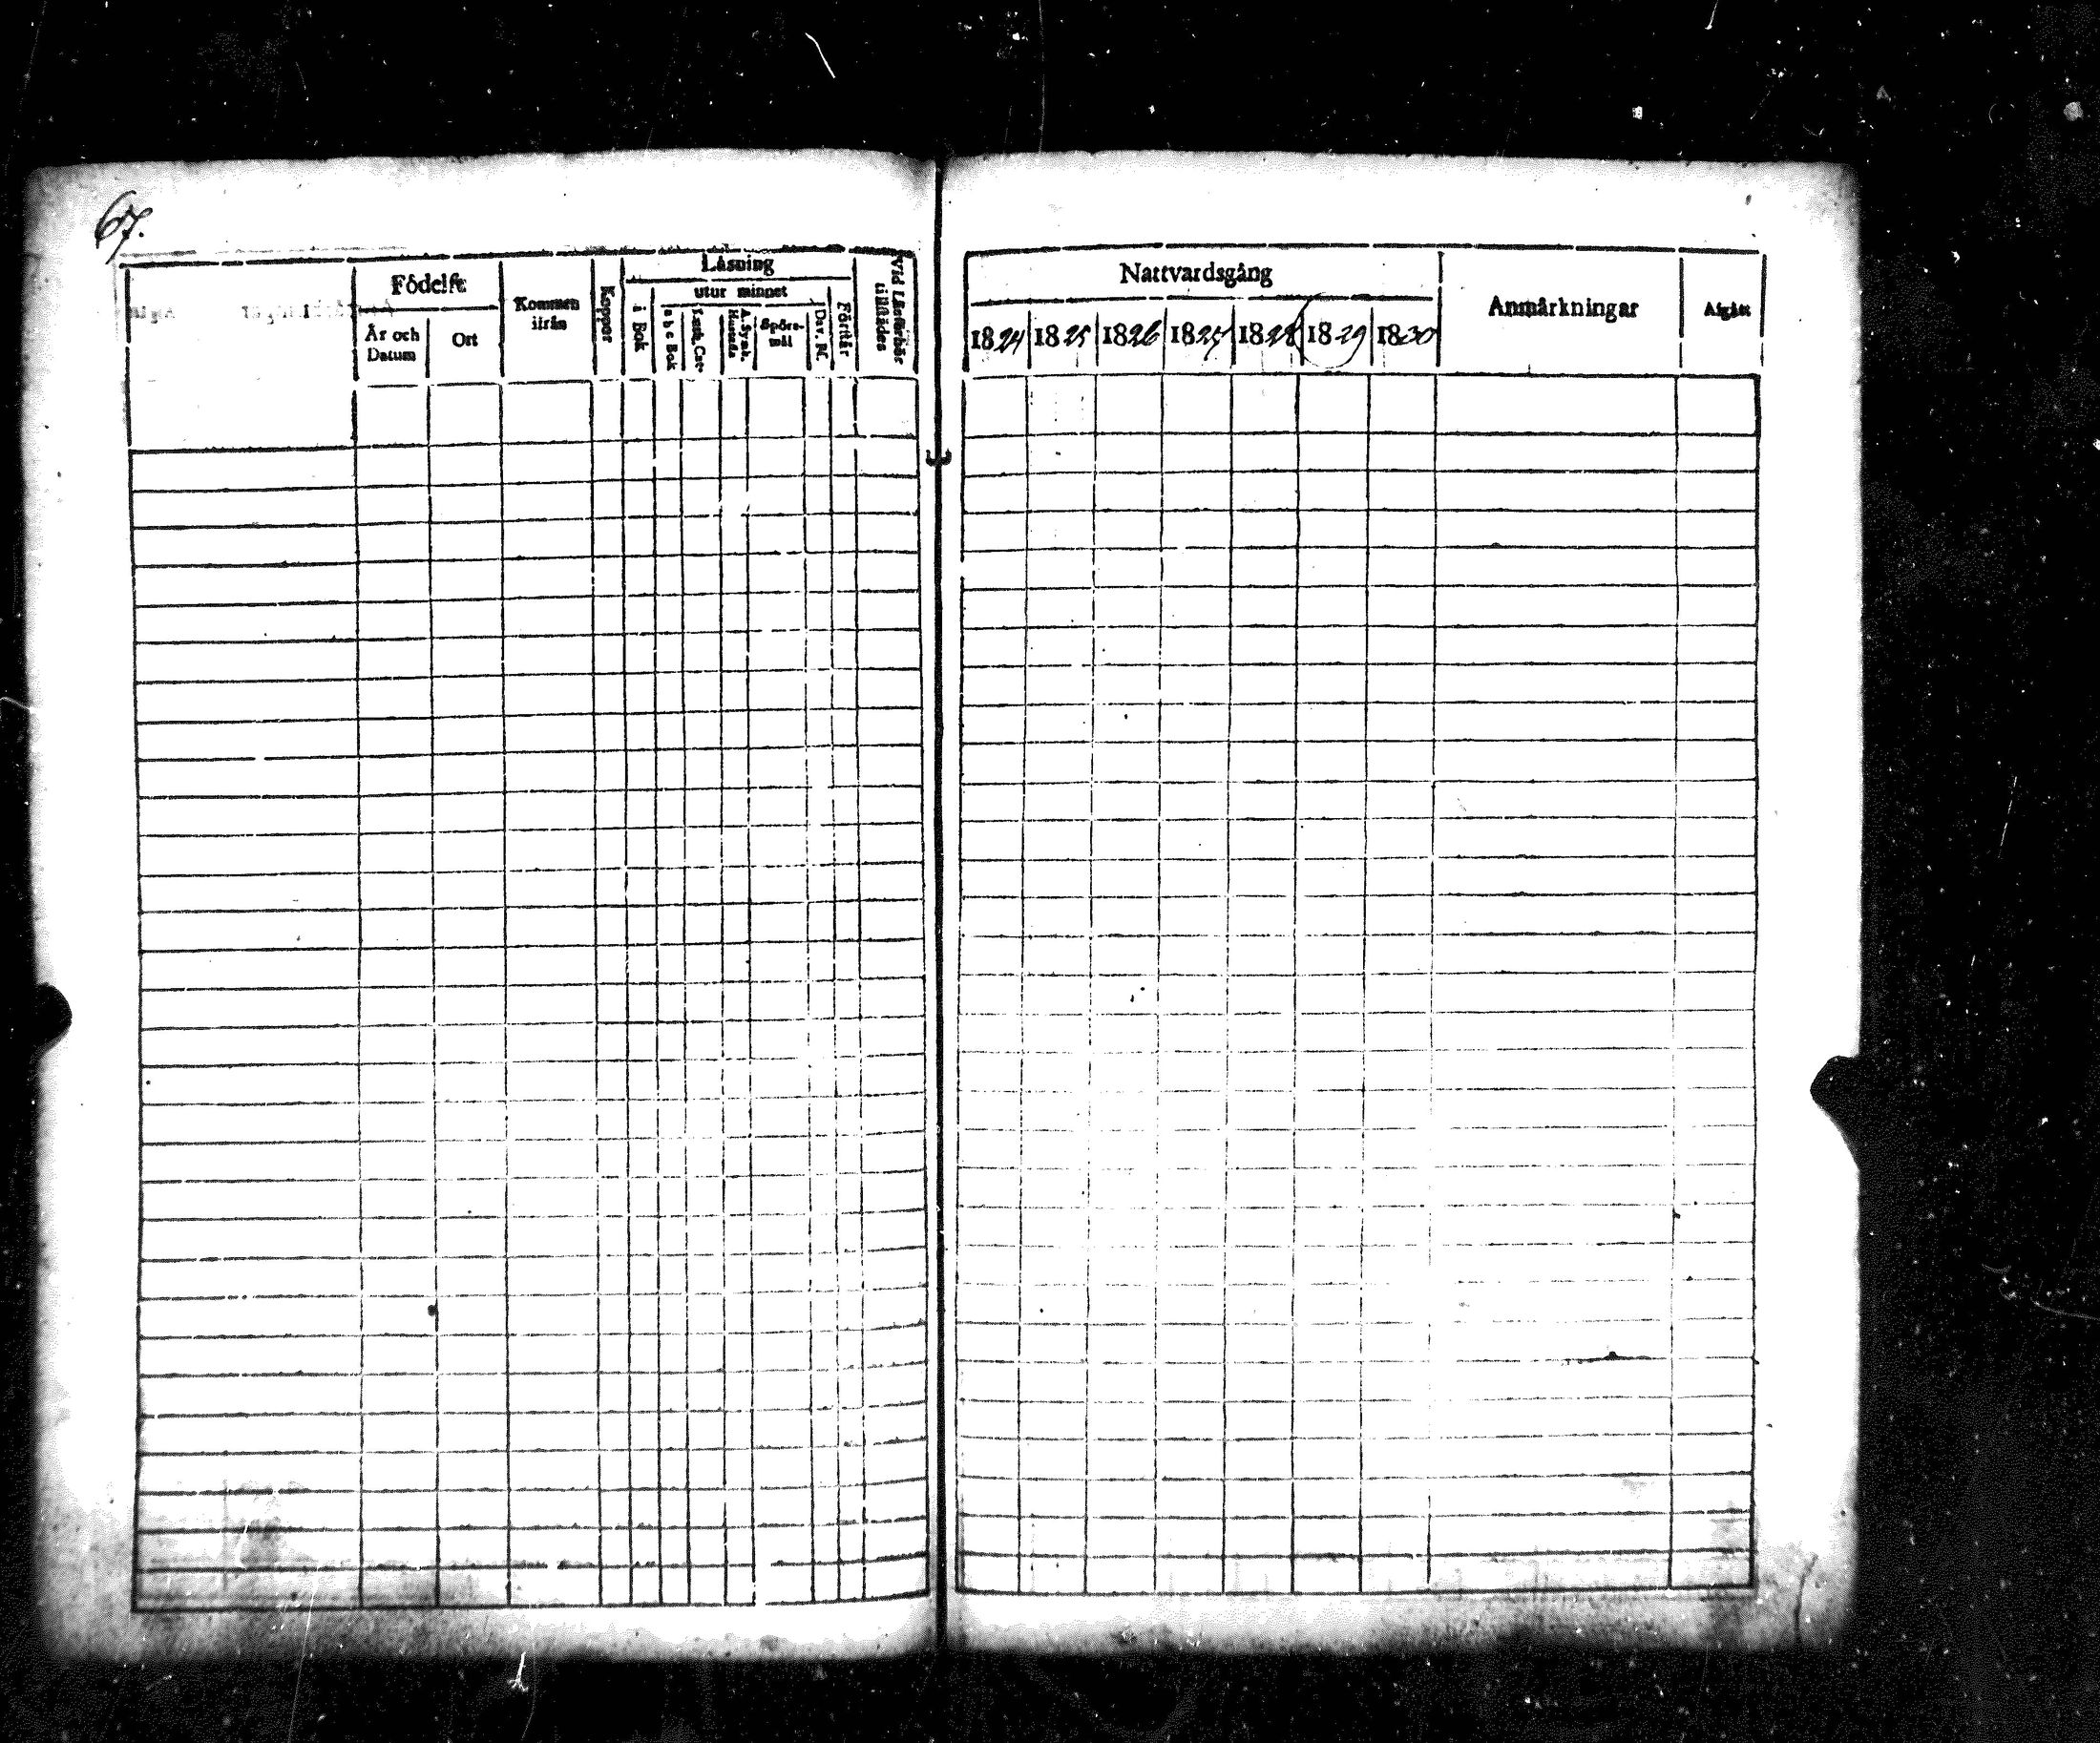 67.
Födelse
År och Datum
Ort
Kommen ifrån
Koppor
Läsning
i Bok
utur minnet
a b c Bok
Luth. Cat.
A. Symb. Hustafla
Spörsmål
Dav. Ps.
Förstår
Vid Läsförhör tillstädes
Nattvardsgång
1824 1825 1826 1827 1828 1829 1830
Anmärkningar
Afgått